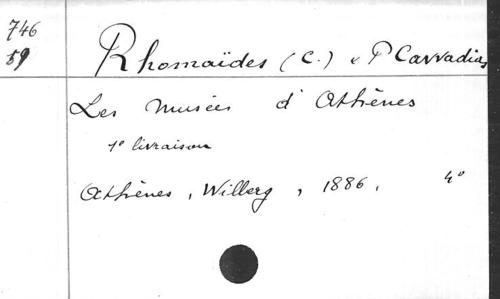 746
59
Rhomaïdes (C.) & P Cavvadias
Les musées d'Athènes
1e livraison
Athènes, Wilberg, 1886, 4°